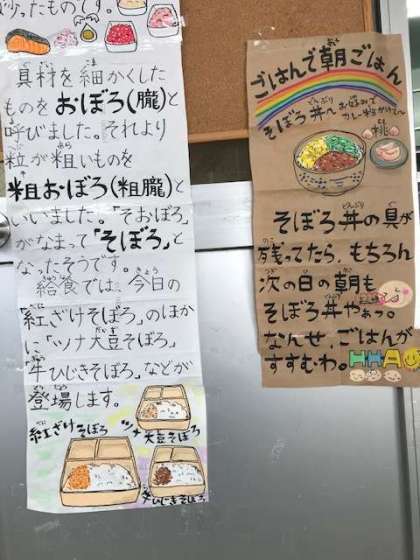 炒ったものです。
具材を細かくした
ものをおぼろ(朧)と
呼びました。それより
粒が粗いものを
粗おぼろ(粗朧)と
いいました。「そおぼろ」
がなまって「そぼろ」と
なったそうです。
給食では、今日の
「紅ざけそぼろ」のほか
に「ツナ大豆そぼろ」
「牛ひじきそぼろ」などが
登場します。
紅ざけそぼろ
ツナ大豆そぼろ
牛ひじきそぼろ
ごはんで朝ごはん
そぼろ丼へ
お好みで
カレー粉かけて〜
桃
そぼろ丼の具が
残ってたら、もちろん
次の日の朝も
そぼろ丼やぁっ。
なんせ、ごはんが
すすむわ。